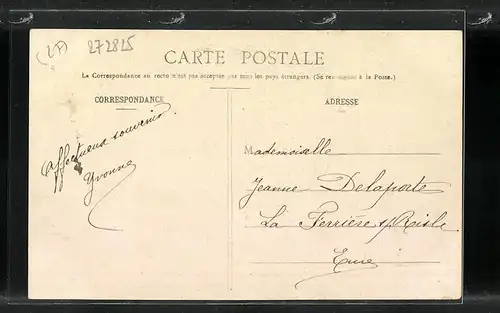 (27) 272825
CARTE POSTALE
La Correspondance au recto n'est pas acceptée par tous les pays étrangers. (Se renseigner à la Poste.)
CORRESPONDANCE
Affectueux souvenirs.
Yvonne
ADRESSE
Mademoiselle
Jeanne Delaporte
La Ferrière s/Risle
Eure